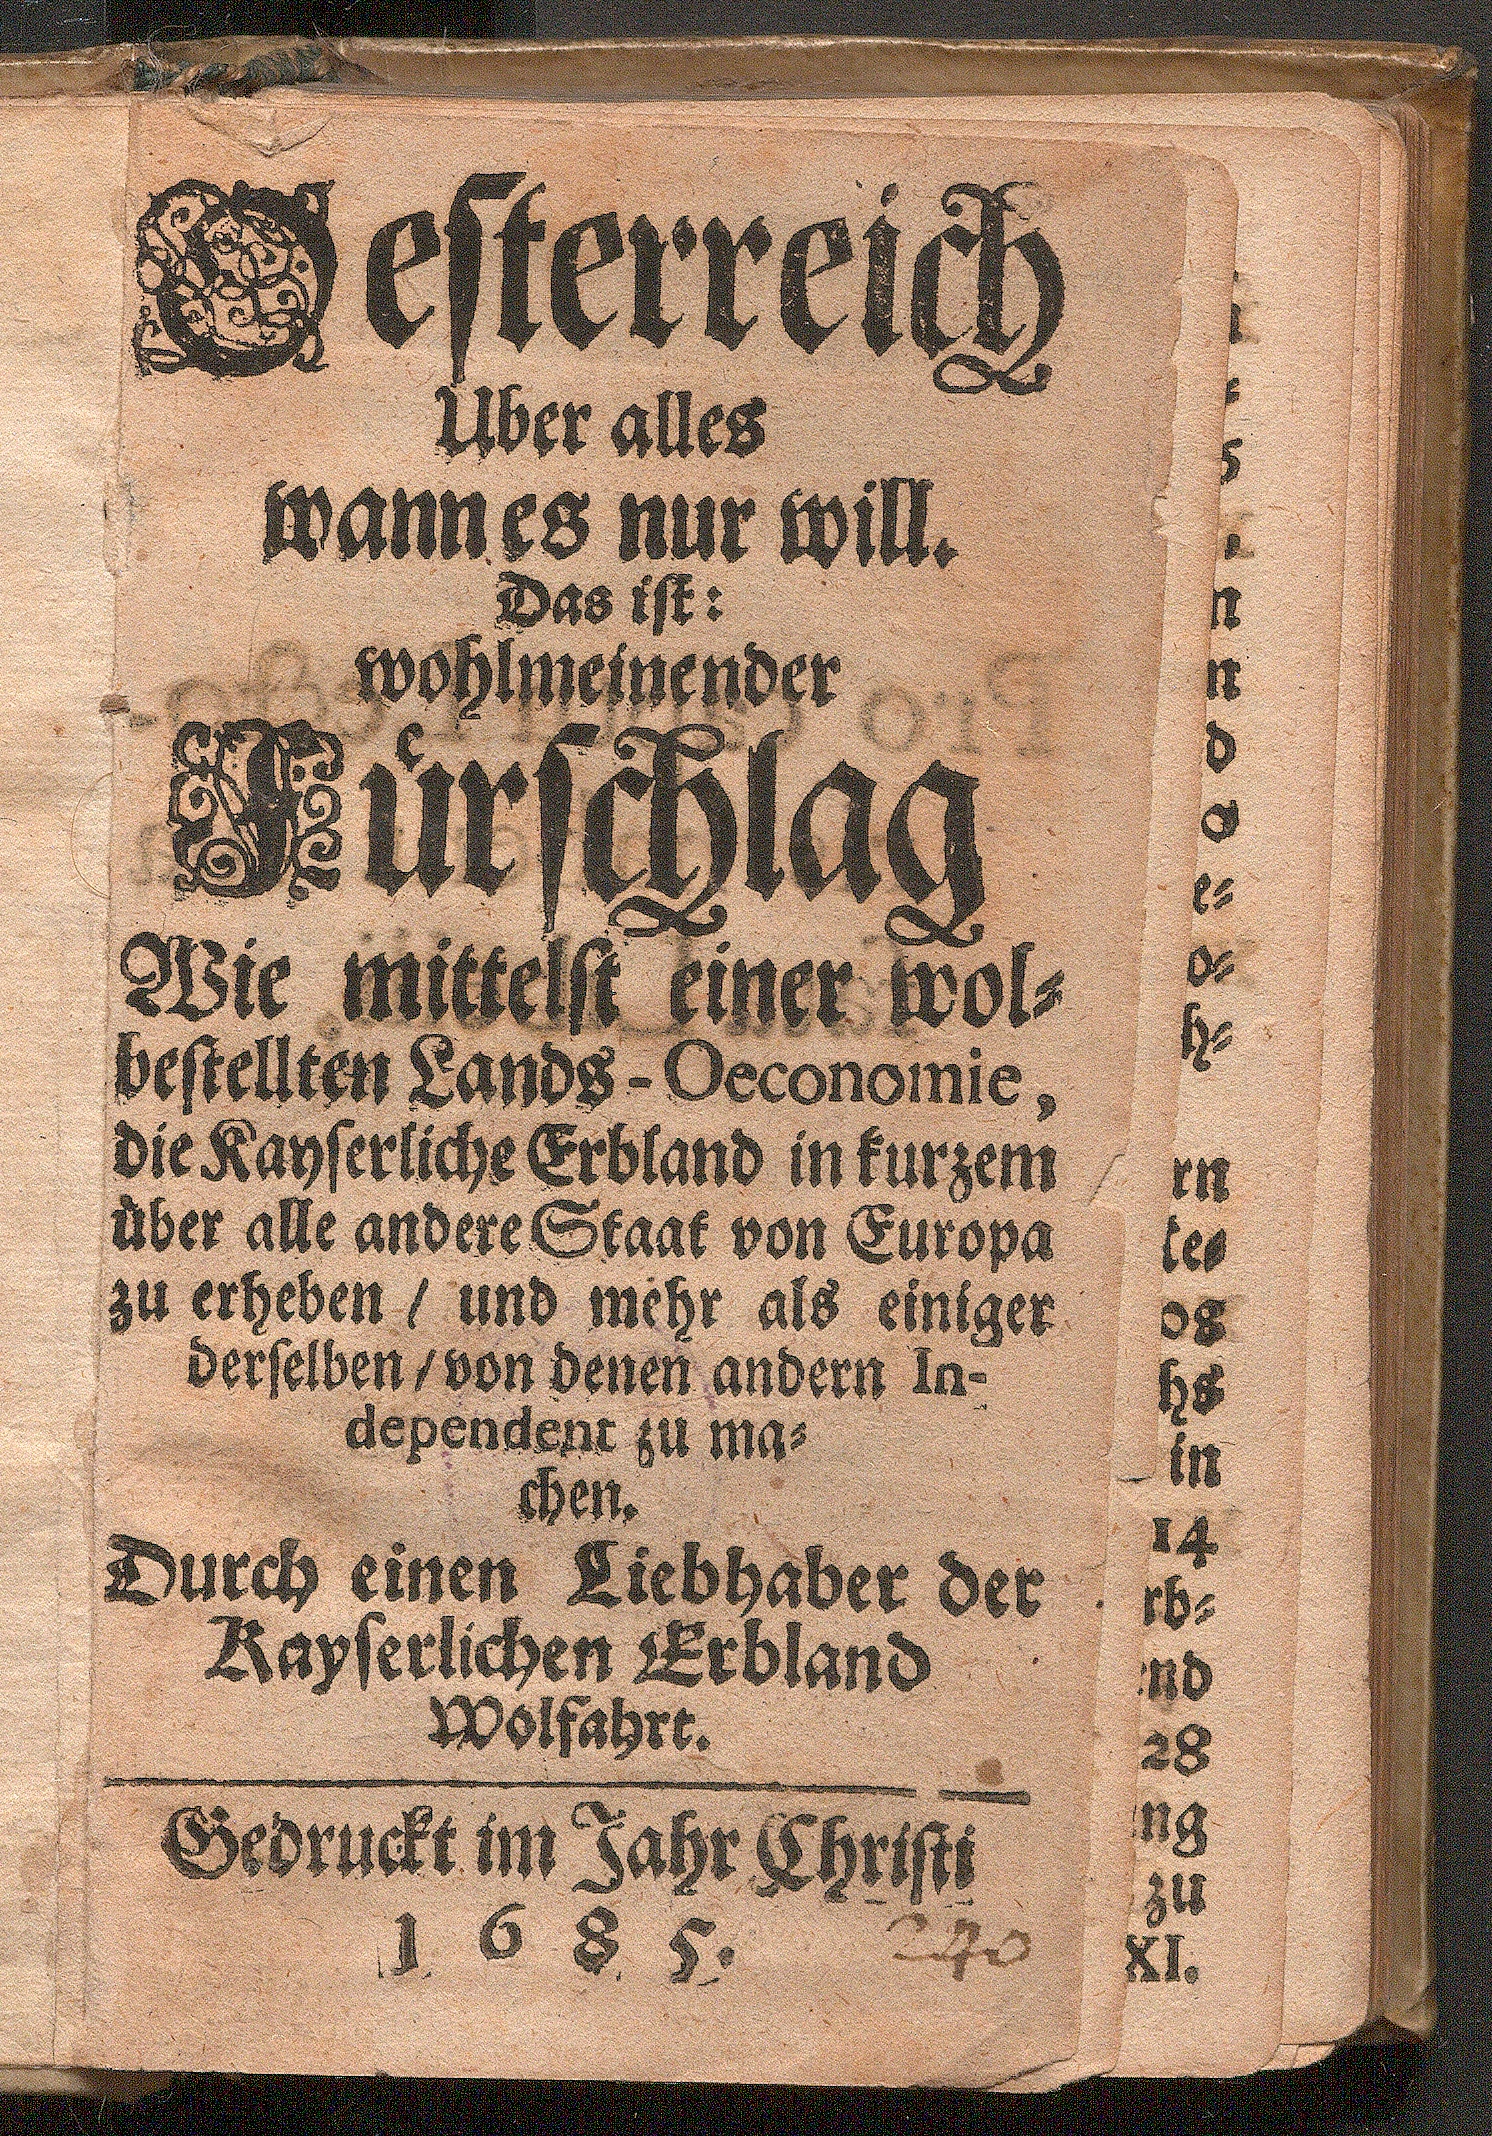 Oesterreich
Uber alles
wann es nur will.
Das iſt:
wohlmeinender
Fuͤrſchlag
Wie mittelſt einer wol⸗
beſtellten Lands-Oeconomie,
die Kayſerliche Erbland in kurzem
uͤber alle andere Staat von Europa
zu erheben / und mehr als einiger
derſelben / von denen andern In-
dependent zu ma⸗
chen.
Durch einen Liebhaber der
Kayſerlichen Erbland
Wolfahrt.
Gedruckt im Jahr Chriſti
1685.
240
n
d
o
e⸗
o⸗
h⸗
rn
te⸗
og
hs
in
14
rb⸗
end
28
ng
zu
XI.